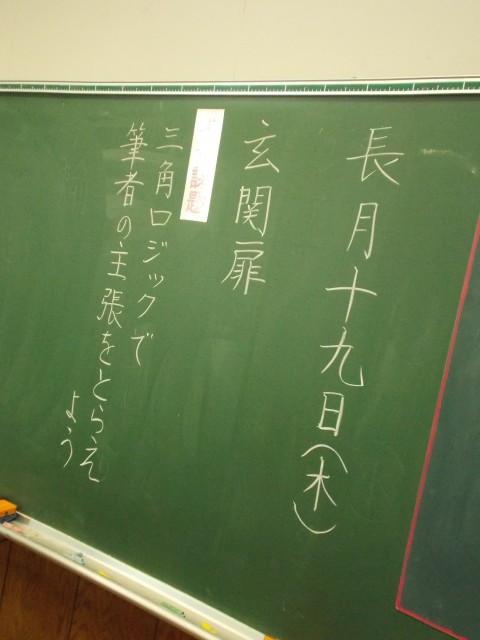 長月十九日(木)
玄関扉
課題
三角ロジックで
筆者の主張をとらえ
よう